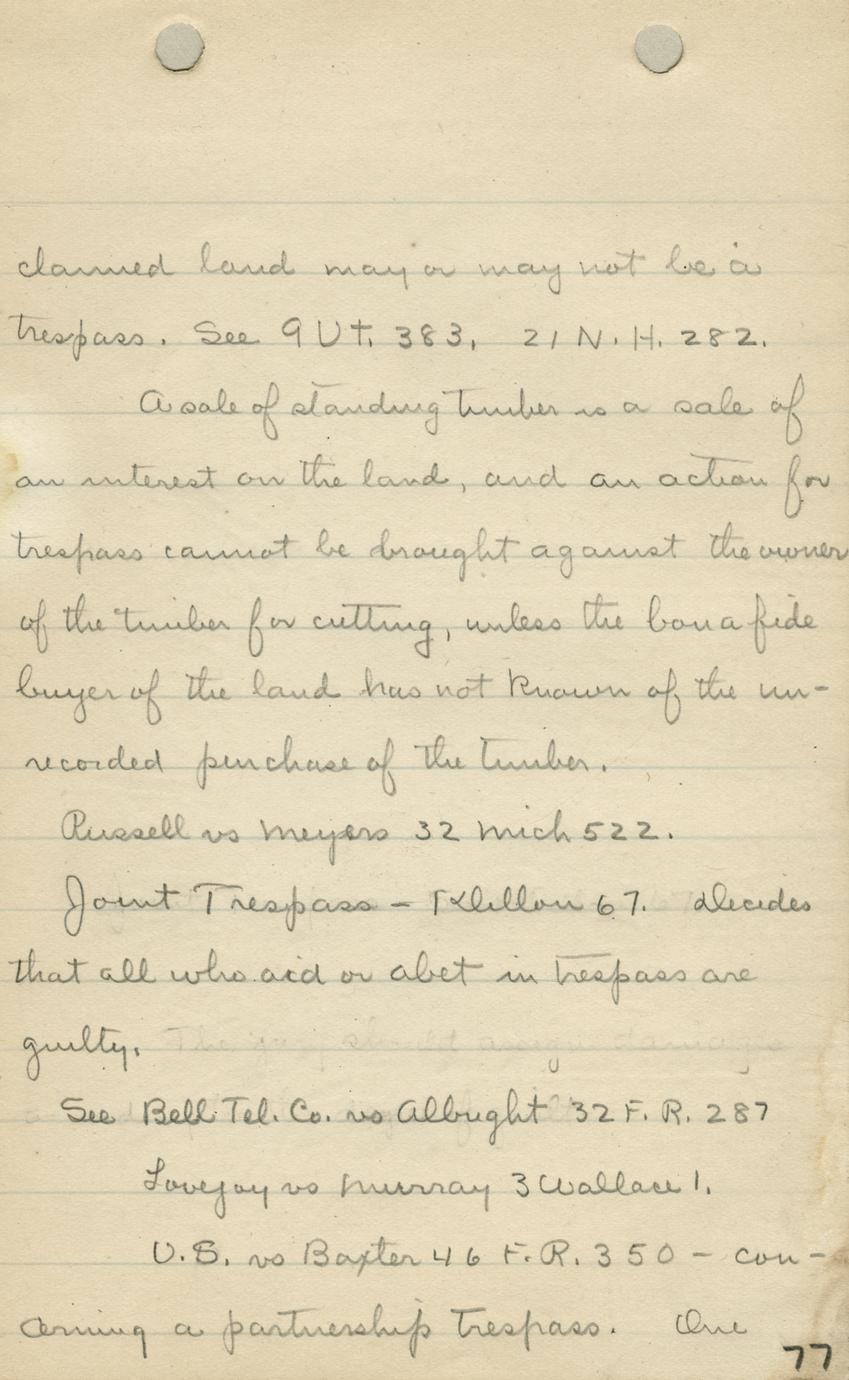 claimed land may or may not be a
trespass. See 9 Vt. 383, 21 N.H. 282.
A sale of standing timber is a sale of
an interest on the land, and an action for
trespass cannot be brought against the owner
of the timber for cutting, unless the bona fide
buyer of the land has not known of the un-
recorded purchase of the timber.
Russell vs Meyers 32 Mich 522.
Joint Trespass - 1 Dillon 67. Decides
that all who aid or abet in trespass are
guilty.
See Bell Tel. Co. vs Albright 32 F. R. 287
Lovejoy vs Murray 3 Wallace 1.
U.S. vs Baxter 46 F.R. 350 - con-
cerning a partnership trespass. One
77